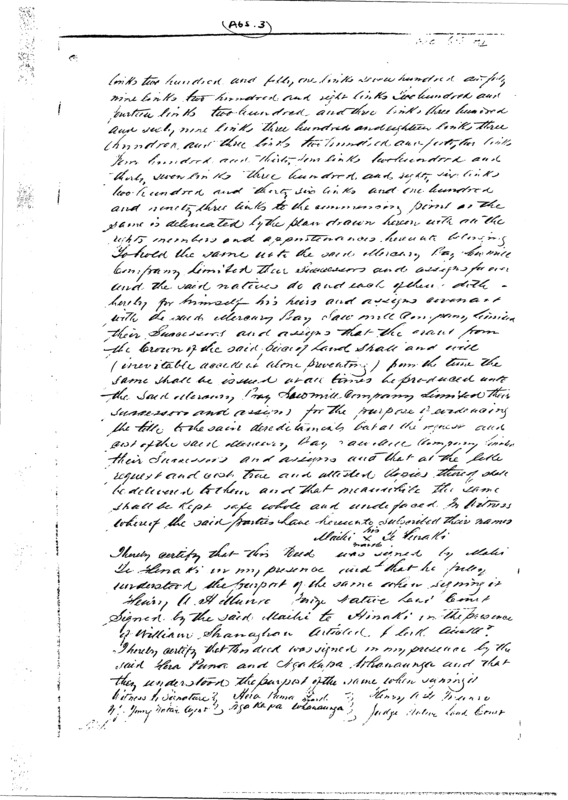 (Abs. 3)
links two hundred and fifty one links seven hundred and fifty
nine links two hundred and eight links two hundred and
fourteen links two hundred and three links three hundred
and sixty nine links three hundred and eighteen links three
hundred and three links two hundred and forty two links
four hundred and thirty four links two hundred and
thirty seven links three hundred and eighty six links
two hundred and thirty six links and one hundred
and ninety three links to the commencing point as the
same is delineated by the plan drawn hereon with all the
rights members and appurtenances hereunto belonging
To hold the same unto the said Mercury Bay Sawmill
Company Limited their Successors and assigns for ever
and the said natives do and each of them doth
hereby for himself his heirs and assigns covenant
with the said Mercury Bay Saw mill Company Limited
their Successors and assigns that the grant from
the Crown of the said piece of Land shall and will
(inevitable accident alone preventing) from the time the
same shall be issued at all times be produced unto
the said Mercury Bay Sawmill Company Limited their
successors and assigns for the purpose of evidencing
the title to the said hereditaments but at the request and
cost of the said Mercury Bay Sawmill Company Limited
their Successors and assigns and that at the like
request and cost true and attested Copies thereof shall
be delivered to them and that meanwhile the same
shall be kept safe whole and undefaced In Witness
whereof the said parties have hereunto subscribed their names
Maihi his x mark Te Hinaki
I hereby certify that this Deed was signed by Maihi
Te Hinaki in my presence and that he fully
understood the purport of the same when signing it
Henry A. H. Munro Judge Native Land Court
Signed by the said Maihi te Hinaki in the presence
of William Shanaghan Articled Clerk
I hereby certify that this deed was signed in my presence by the
said Hera Puna and Ngakapa Whanaunga and that
they understood the purport of the same when signing it
Witness to Signature Hera Puna Henry A. H. Munro
Ngakapa Whanaunga Judge Native Land Court